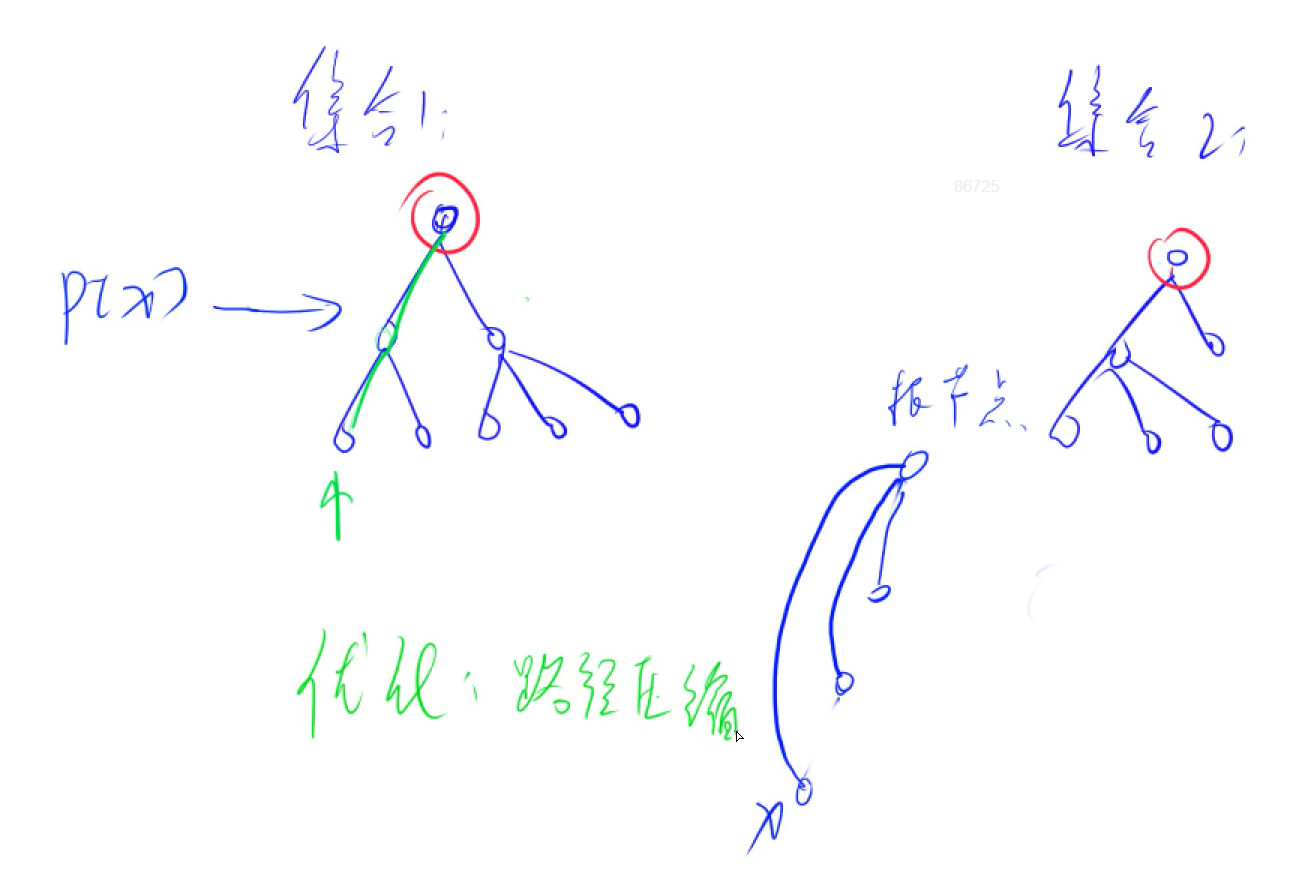 集合1:
集合2:
86725
p[x]
根节点
优化:路径压缩
x